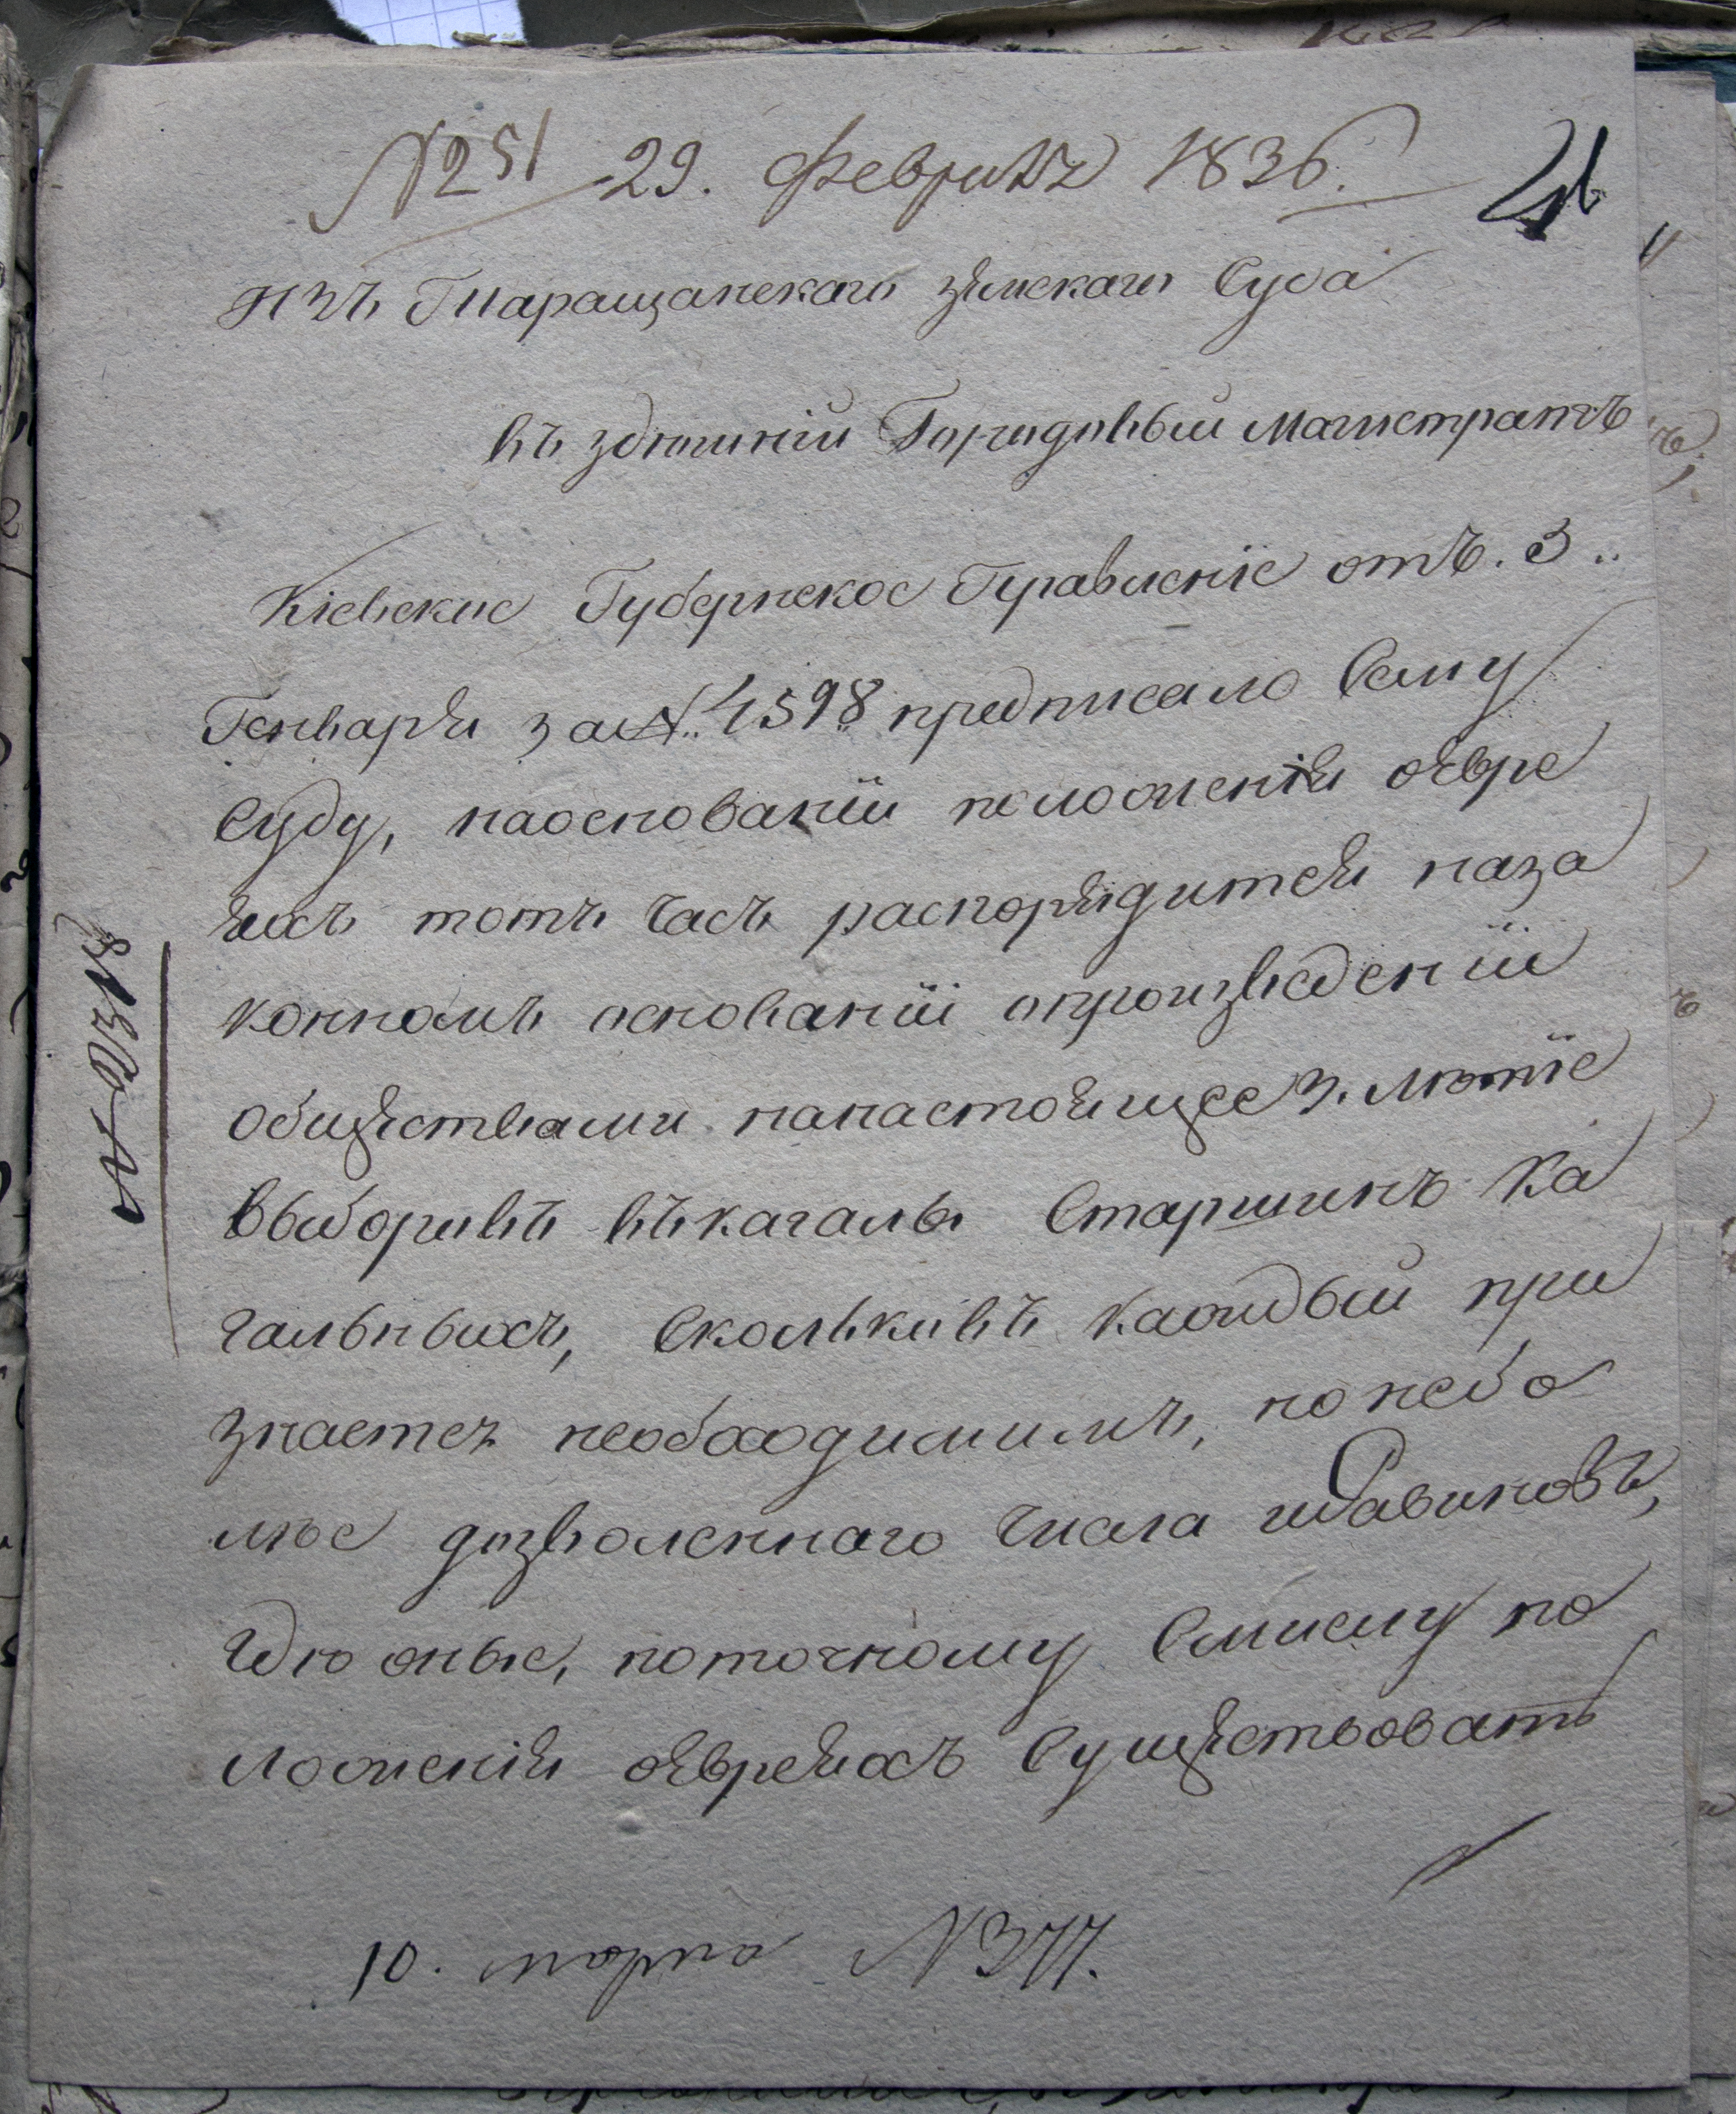 № 251 29. Февраля 1836.
Изъ Таращанскаго земскаго Суда
въ здешній Городовый Магистратъ
Кіевское Губернское Правленіе отъ. 3..
Генваря за №. 4598 предписало Сему
Суду, наоснованіи положенія оЕвре
яхъ тотъ часъ распорядится наза
конномъ основаніи опроизведеніи
обществами нанастоящее 3. летіе
выборовъ въкагалы Старшинъ Ка
гальныхъ, Сколковъ каждый при
знаетъ необходимимъ, но небо
лѣе дозволеннаго числа
гдю оные, поточному Смислу по
ложенія оЕвреяхъ Существоватъ
10. марта № 377.